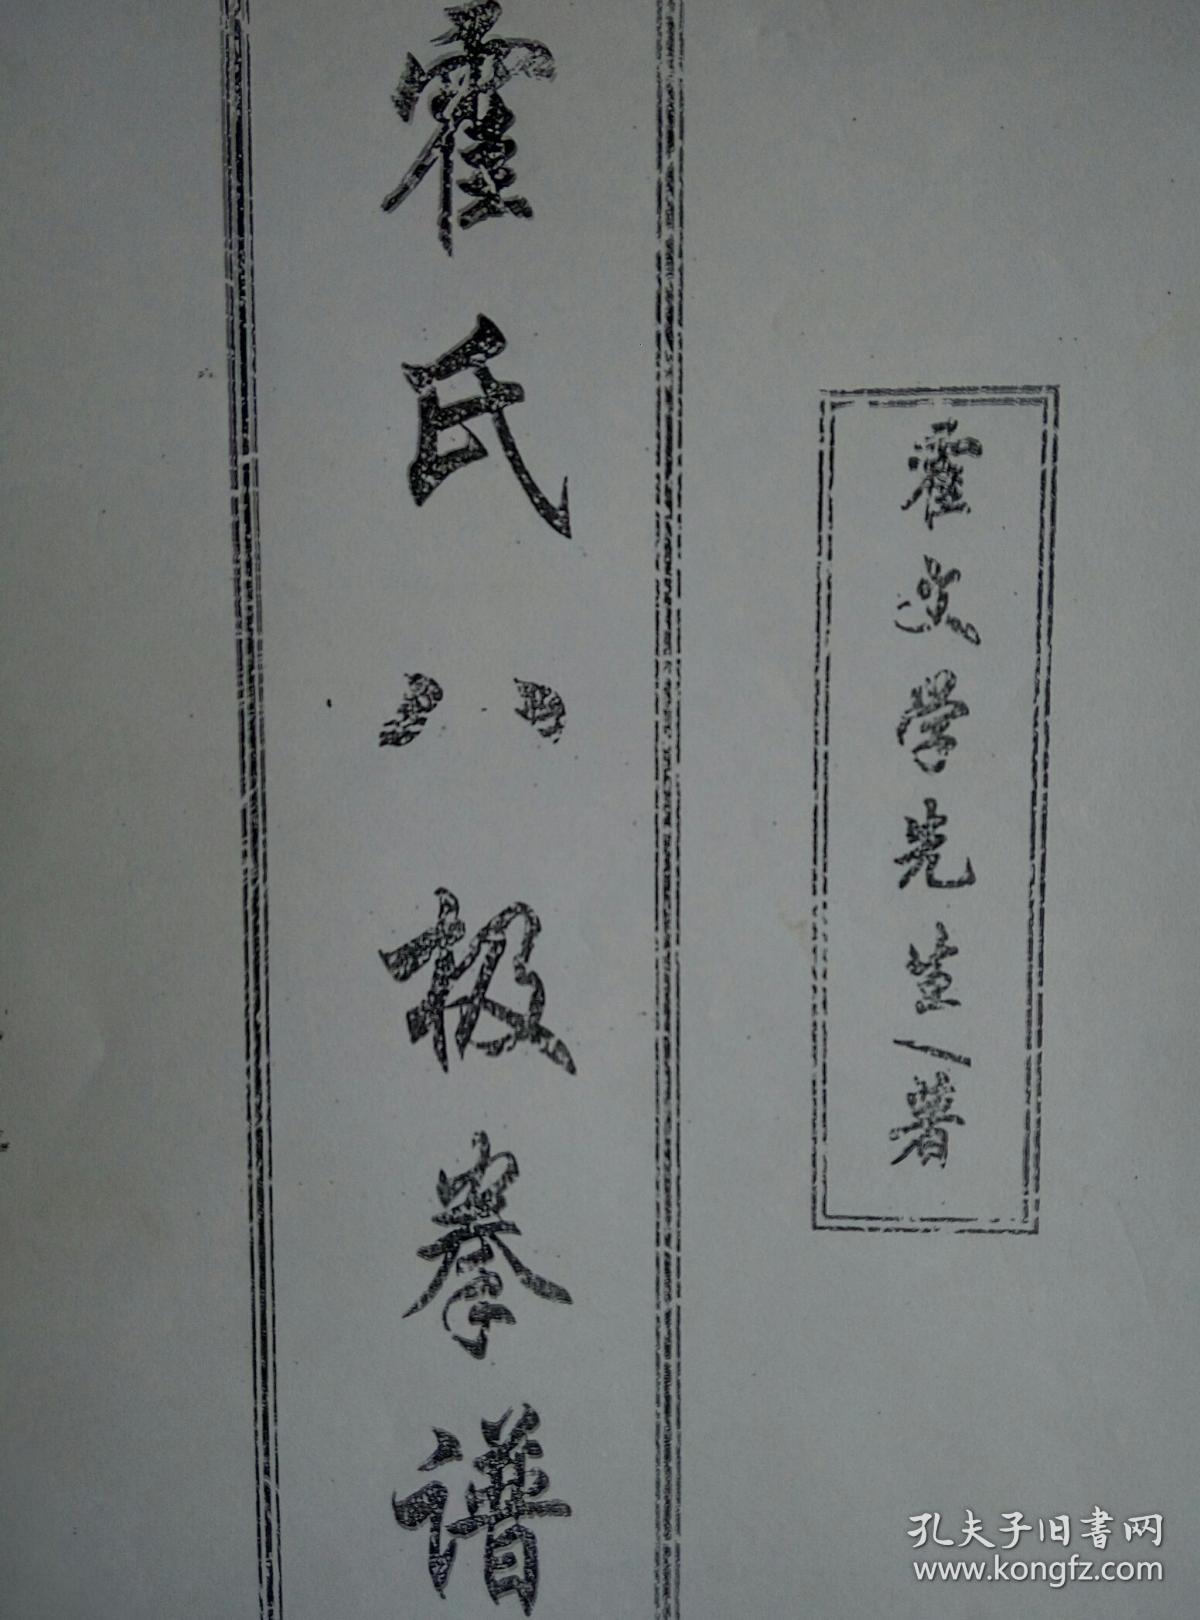 霍文学先生著
霍氏八极拳谱
孔夫子旧書网
www.kongfz.com